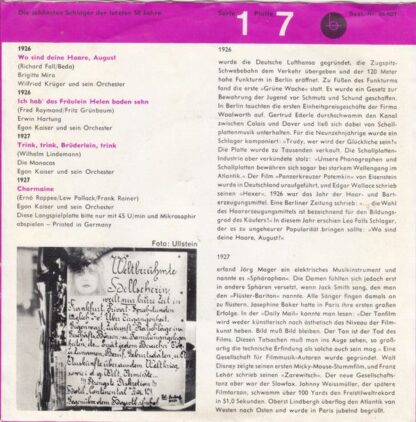 Die schönsten Schlager der letzten 50 Jahre
Serie 1 Platte 7
Best.-Nr.
1926
Wo sind deine Haare, August
(Richard Fall/Beda)
Brigitte Mira
Wilfried Krüger und sein Orchester
1926
Ich hab' das Fräulein Helen baden sehn
(Fred Raymond/Fritz Grünbaum)
Erwin Hartung
Egon Kaiser und sein Orchester
1927
Trink, trink, Brüderlein, trink
(Wilhelm Lindemann)
Die Monacos
Egon Kaiser und sein Orchester
1927
Charmaine
(Ernö Rappee/Lew Pollack/Frank Banner)
Egon Kaiser und sein Orchester
Diese Langspielplatte bitte nur mit 45 U/min und Mikrosaphir
abspielen – Printed in Germany
Foto: Ullstein
Weltberühmte
Hellseherin
weilt nur kurze Zeit in
Frankfurt. Privat-Sprechstunden
1926
wurde die Deutsche Lufthansa gegründet, die Zugspitz-
Schwebebahn dem Verkehr übergeben und der 120 Meter
hohe Funkturm in Berlin eröffnet. Zu Füßen des Funkturms
fand die erste »Grüne Woche« statt. Es wurde ein Gesetz zur
Bewahrung der Jugend vor Schmutz und Schund geschaffen.
In Berlin tauchten die ersten Einheitspreisgeschäfte der Firma
Woolworth auf. Gertrud Ederle durchschwamm den Kanal
zwischen Calais und Dover und ließ sich dabei von Schall-
plattenmusik unterhalten. Für die Neunzehnjährige wurde ein
Schlager komponiert: »Trudy, wer wird der Glückliche sein?«
Die Platte wurde zu Tausenden verkauft. Die Schallplatten-
Industrie aber verkündete stolz: »Unsere Phonographen und
Schallplatten bewähren sich sogar bei starkem Wellengang im
Atlantik.« Der Film »Panzerkreuzer Potemkin« von Eisenstein
wurde in Deutschland uraufgeführt, und Edgar Wallace schrieb
seinen »Hexer«. 1926 war das Jahr der Haar- und Bart-
erzeugungsmittel. Eine Berliner Zeitung schrieb: »... die Wahl
des Haarerzeugungsmittels ist bezeichnend für den Bildungs-
grad des Käufers!« In diesem Jahr schrieb Leo Falls Schlager,
der es zu ungeheurer Popularität bringen sollte: »Wo sind
deine Haare, August!«
1927
erfand Jörg Mager ein elektrisches Musikinstrument und
nannte es »Sphärophon«. Die Damen fühlten sich jedoch erst
in andere Sphären versetzt, wenn Jack Smith sang, den man
den »Flüster-Bariton« nannte. Alle Sänger fingen damals an
zu flüstern. Josephine Baker hatte in Paris ihre ersten großen
Erfolge. In der »Daily Mail« konnte man lesen: »Der Tonfilm
wird weder künstlerisch noch ästhetisch das Niveau der Film-
kunst haben. Bild muß Bild bleiben. Der Ton ist der Tod des
Films. Diesen Tatsachen muß man ins Auge sehen, so groß-
artig die technische Erfindung als solche auch sein mag.« Eine
Gesellschaft für Filmmusik-Autoren wurde gegründet. Walt
Disney zeigte seinen ersten Micky-Mouse-Stummfilm, und Franz
Lehár schrieb seinen »Zarewitsch«. Der neue Gesellschafts-
tanz aber war der Slowfox. Johnny Weissmüller, der spätere
Filmtarzan, schwamm über 100 Yards den Freistilweltrekord
in 51,0 Sekunden. Oberst Lindbergh überflog den Atlantik von
Westen nach Osten und wurde in Paris jubelnd begrüßt.